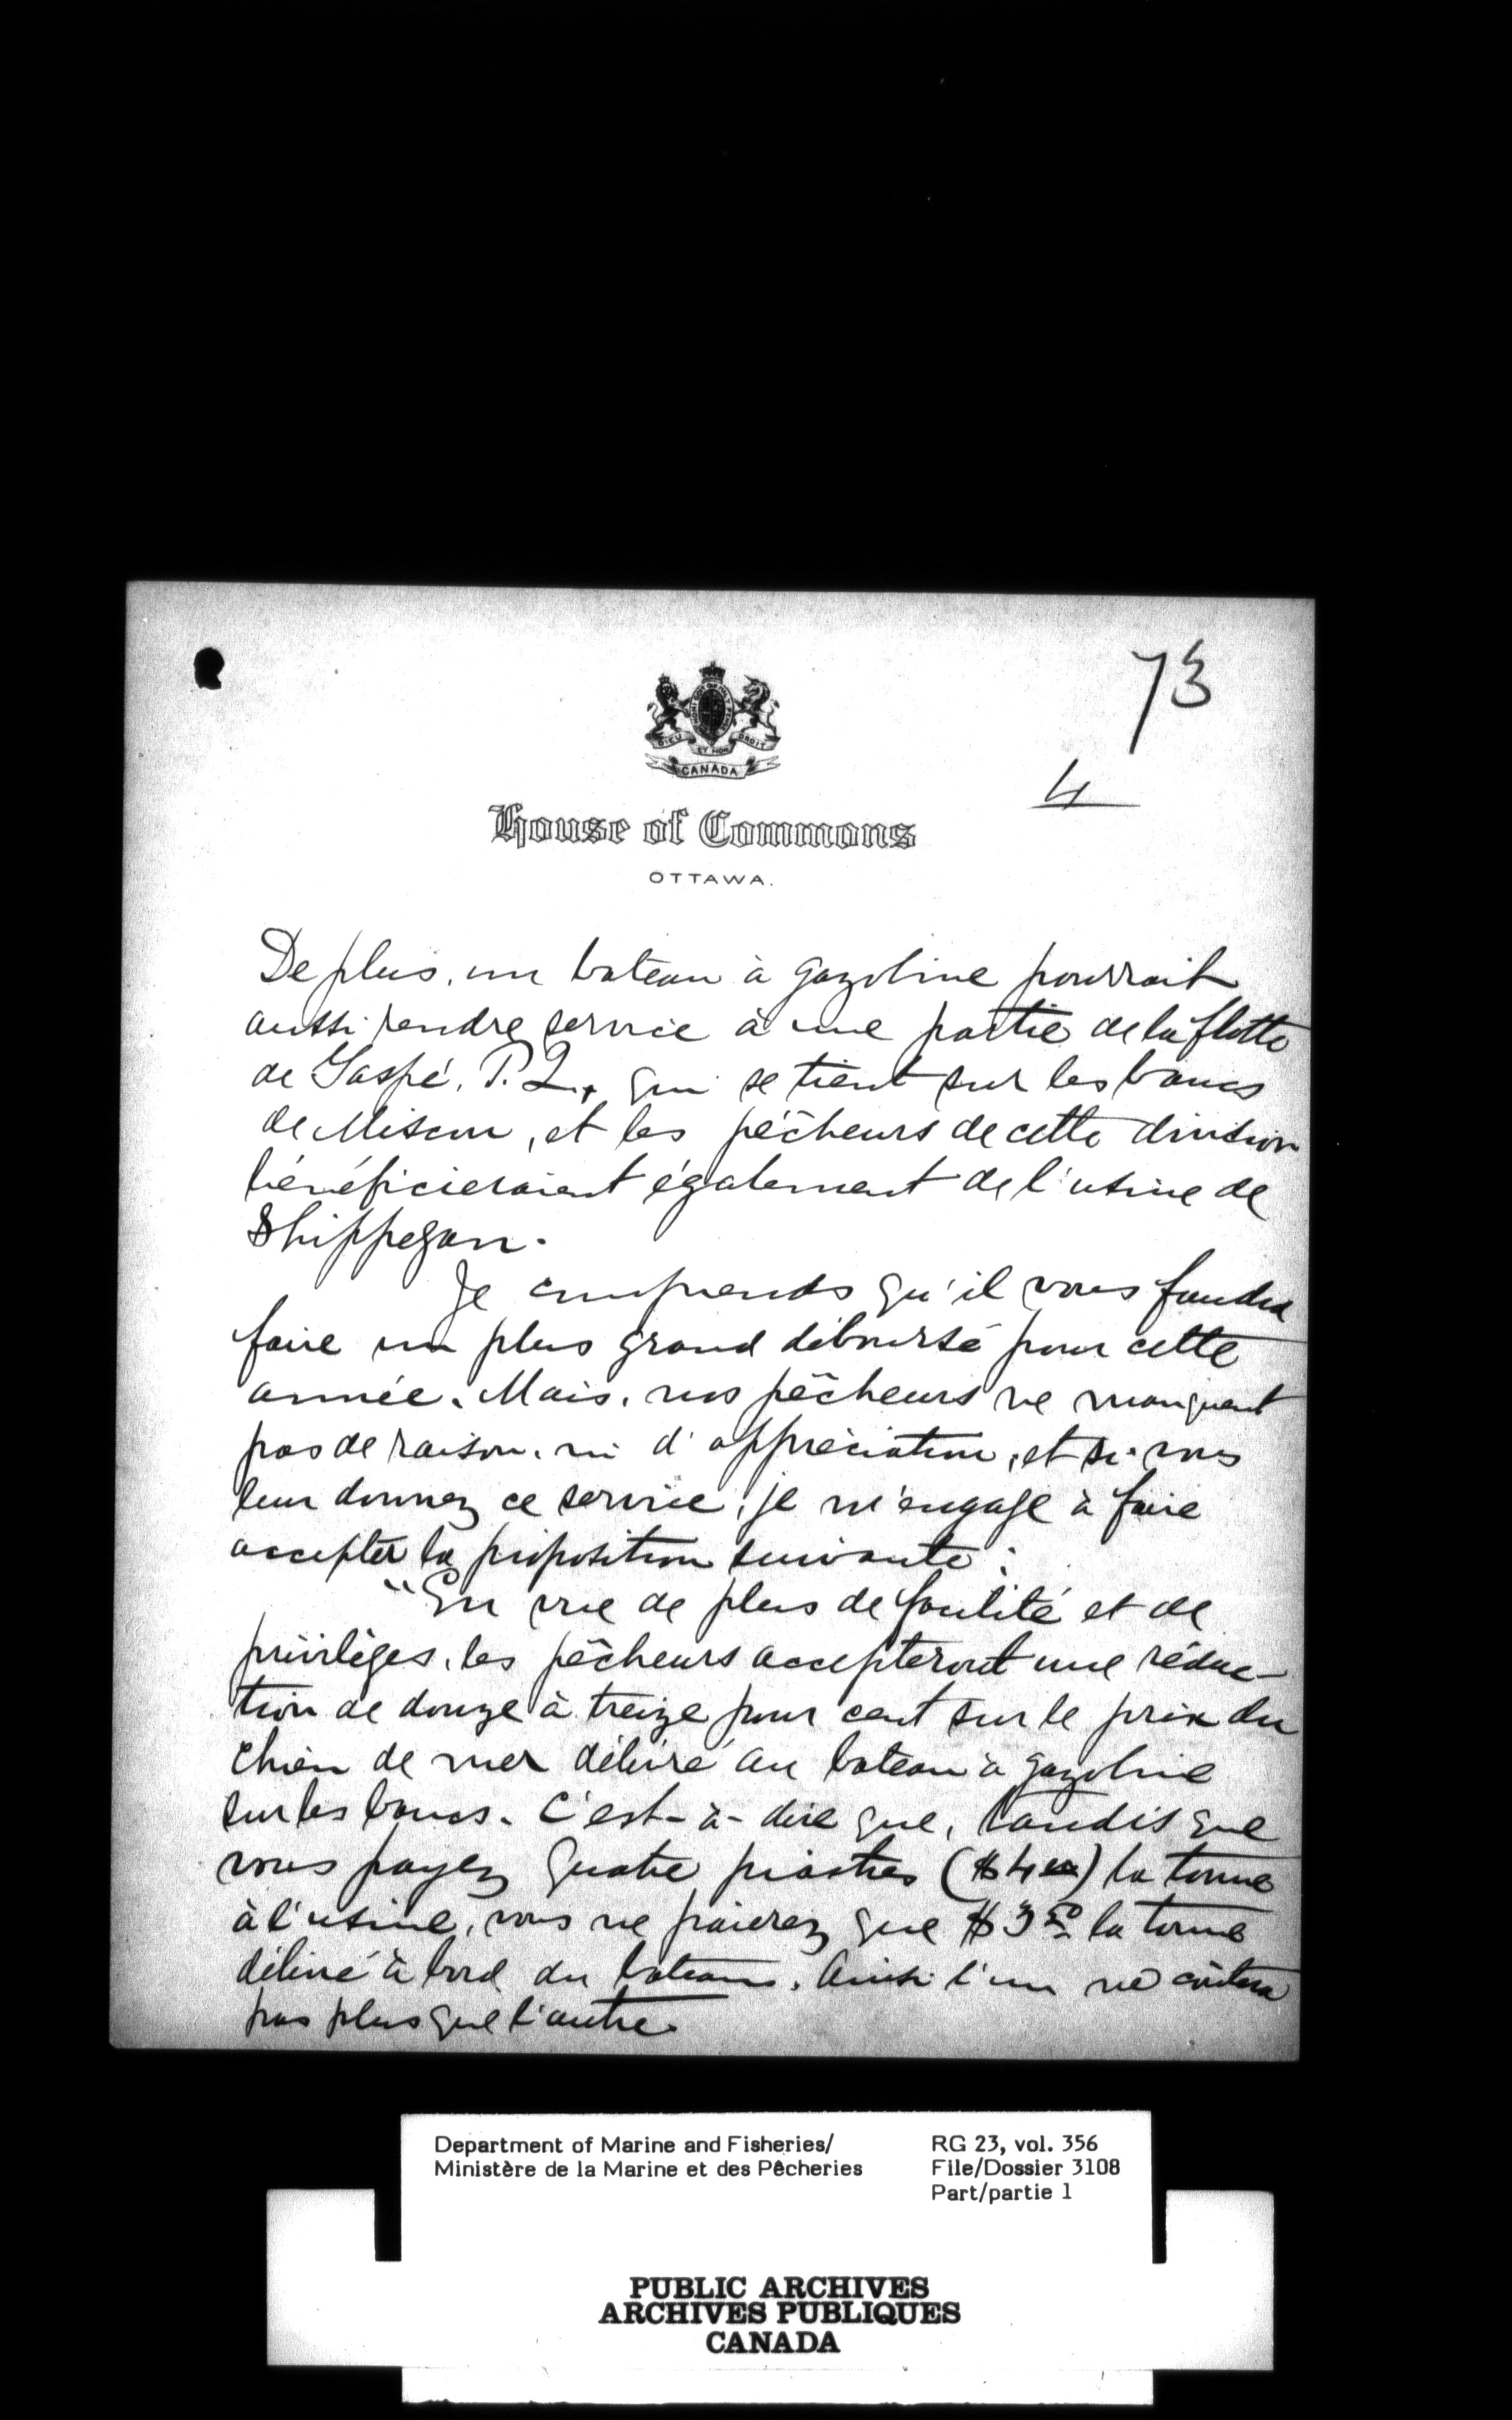 73
DIEU ET MON DROIT
CANADA
4
House of Commons
OTTAWA.
De plus, un bateau à gazoline pourrait
aussi rendre service à une partie de la flotte
de Gaspé, P.Q., qui se tient sur les bancs
de Miscou, et les pêcheurs de cette division
bénéficieraient également de l'usine de
Shippegan.
Je comprends qu'il vous faudra
faire un plus grand déboursé pour cette
année. Mais, nos pêcheurs ne manquent
pas de raison, ni d'appréciation, et si vous
leur donnez ce service, je m'engage à faire
accepter la proposition suivante :
"En vue de plus de facilité et de
privilèges, les pêcheurs accepteront une réduc-
tion de douze à treize pour cent sur le prix du
chien de mer délivré au bateau à gazoline
sur les bancs. C'est-à-dire que, tandis que
vous payez quatre piastres ($4 00) la tonne
à l'usine, vous ne paierez que $3 50 la tonne
délivré à bord du bateau. Ainsi l'un ne coûtera
pas plus que l'autre.
Department of Marine and Fisheries/
Ministère de la Marine et des Pêcheries
RG 23, vol. 356
File/Dossier 3108
Part/partie 1
PUBLIC ARCHIVES
ARCHIVES PUBLIQUES
CANADA